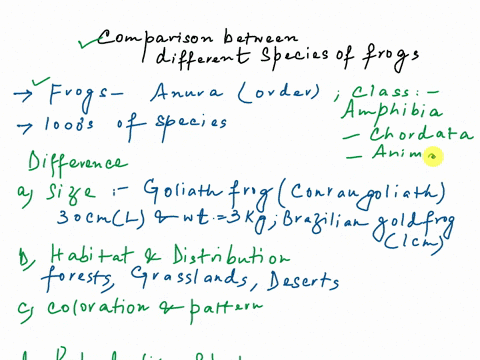 Comparison between
different Species of frogs
→ Frogs - Anura (order) ; Class :-
Amphibia
→ 1000's of species
- Chordata
- Anim
Difference
a) Size :- Goliath frog (Conraugoliath)
30cm(L) & wt.=3Kg; Brazilian goldfrog
(1cm)
b) Habitat & Distribution
forests, Grasslands, Deserts
c) Coloration & pattern